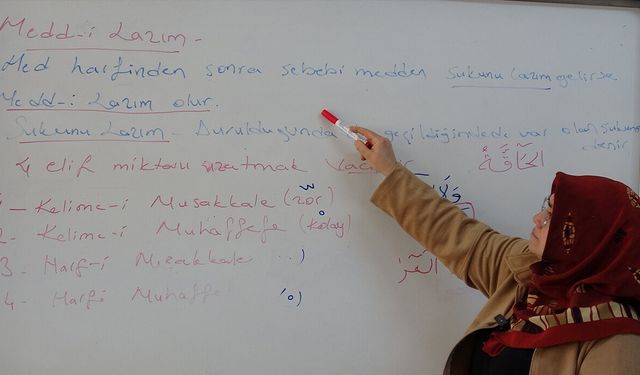 Medd-i Lazım -
Med harfinden sonra sebebi medden sukunu lazım gelirse
Medd-i Lazım olur.
Sukunu Lazım - Durulduğunda geçildiğindede var olan sukuna denir
4 elif miktarı uzatmak
الحَاقَّةُ
1 - Kelime-i Musakkale (zor)
وَلَا
2 - Kelime-i Muhaffefe (kolay)
3 - Harf-i Musakkale
4 - Harfi Muhaffe